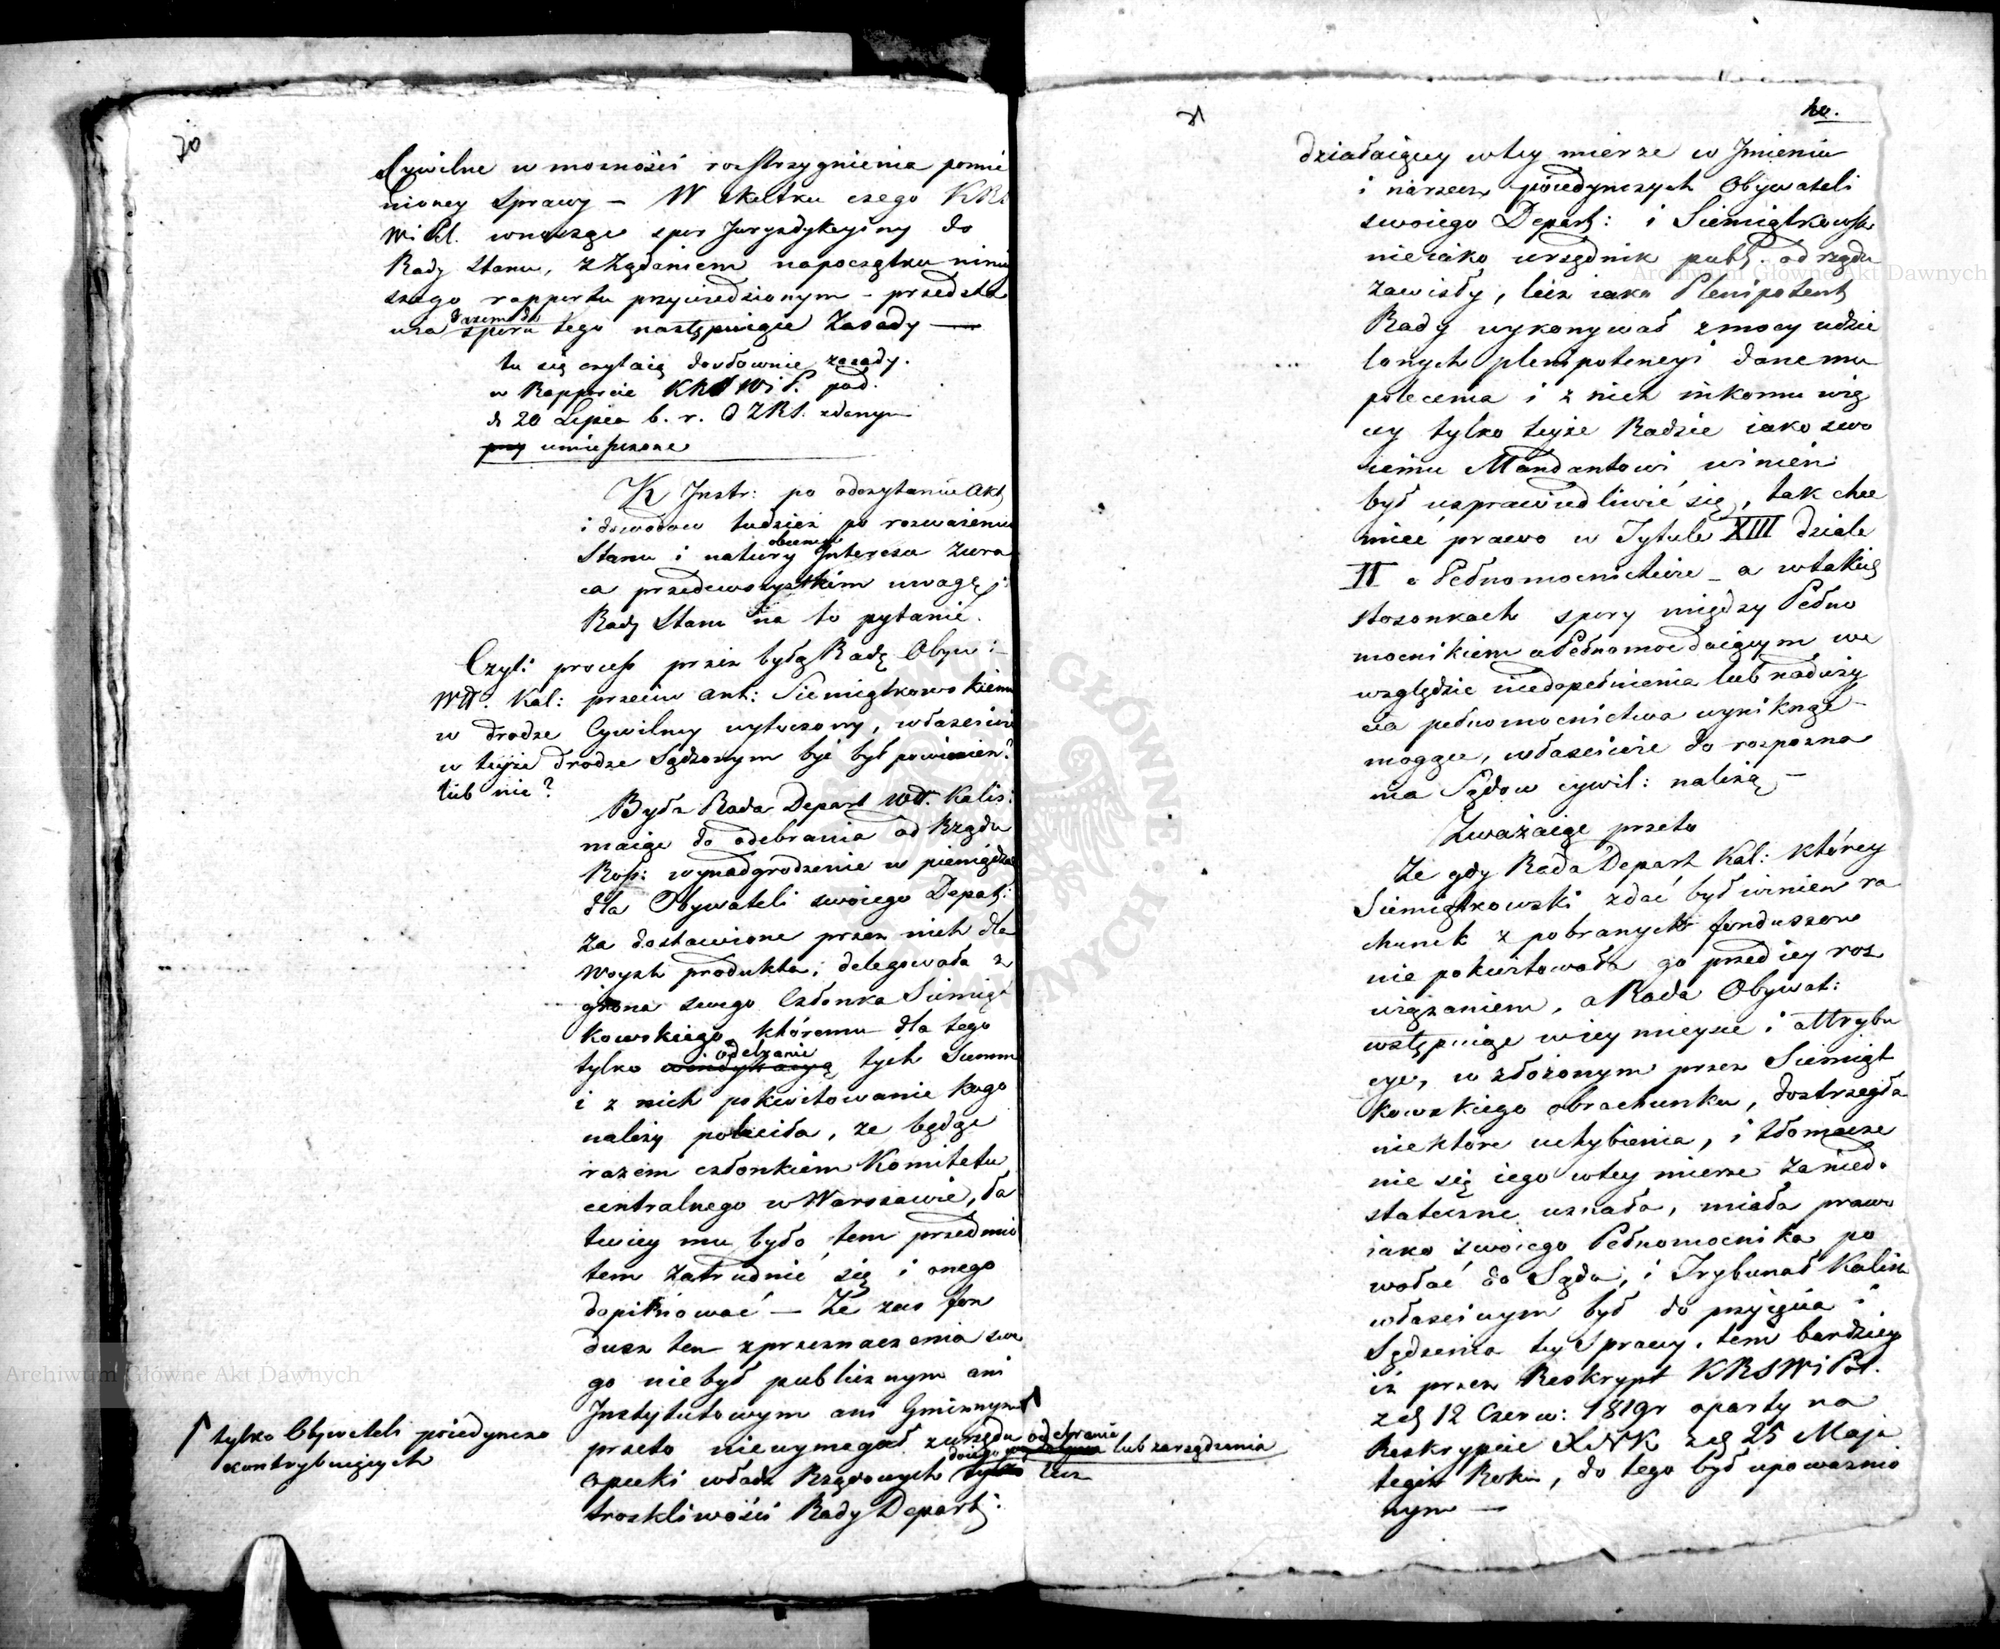 70
Cywilne w możności rozstrzygnienia pomie
nioney Sprawy – W skutku czego KRS
WiPol. wnosząc spor Juryzdykcyiny do
Rady Stanu, z Żądaniem na początku ninie
szego rapportu przywiedzionym – przedsta
wia sporu tego następuiące Zasady —
tu się czytaią dosłownie zasady.
w Rapporcie KRSWiP. pod.
d 20 Lipca b. r. zdanym
przy umieszczone
K Instr: po odczytaniu Akt
i dowodow tudzież po rozważeniu
Stanu i natury obecnego Interesu zwra
ca przedewszystkim uwagę
Rady Stanu na to pytanie.
Czyli process przez byłą Radę Obyw:
Wtt. Kal: przeciw Ant: Siemiątkowskiemu
w drodze Cywilney wytoczony, właściwie
w teyże drodze Sądzonym być był powinien?
lub nie?
Była Rada Depart Wtt. Kalis:
maiąc do odebrania od Rządu
Ross: wynadgrodzenie w pieniądzach
dla Obywateli swoiego Depart:
za dostawione przez nich dla
Woysk produkta, delegowała z
grona swego Członka Siemiąt
kowskiego, któremu dla tego
tylko windykacyą odebranie tych Summ
i z nich pokwitowanie kogo
należy poleciła, że będąc
razem członkiem Komitetu
centralnego w Warszawie, ła
twiey mu było tem przedmio
tem zatrudnić się i onego
dopilnować – Że zaś fun
dusz ten z przeznaczenia swe
go nie był publicznym ani
Instytutowym ani Gminnym
↑ tylko Obywateli poiedyncze
kontrybuiących
przeto nie wymagał zarządu odebranie lub zarządzenia
opieki władz Rządowych tylko lecz
troskliwości Rady Depart:
71
40.
działaiącey w tey mierze w Imieniu
i na rzecz poiedynczych Obywateli
swoiego Depart: i Siemiątkowski
nie iako urzędnik publ. od rządu
zawisły, lecz iako Plenipotent
Rady wykonywał z mocy udzie
lonych plenipotencyi dane mu
polecenia i z nich nikomu wię
cy tylko teyże Radzie iako swo
iemu Mandantowi winien
był usprawiedliwić się, tak chce
mieć prawo w Tytule XIII dziale
II o Pełnomocnictwie – a w takich
stosunkach spory między Pełno
mocnikiem a Pełnomocdaiącym we
względzie niedopełnienia lub naduży
cia pełnomocnictwa wyniknąć –
mogące, właściwie do rozpozna
nia Sądow cywil: należą –
Zważaiąc przeto
Że gdy Rada Depart Kal: którey
Siemiątkowski zdać był winien ra
chunek z pobranych funduszow
nie pokwitowała go przed iey roz
wiązaniem, a Rada Obywat:
wstępuiąc w iey mieysce i attrybu
cye, w złożonym przez Siemiąt
kowskiego obrachunku, dostrzegła
niektóre uchybienia, i tłomacze
nie się iego w tey mierze za niedo
stateczne uznała, miała prawo
iako swoiego Pełnomocnika po
wołać do Sądu, i Trybunał Kalisk
właściwym był do przyięcia i
Sądzenia tey Sprawy, tem bardziey
iż przez Reskrypt KRSWiPol.
z d 12 Czerw: 1819r oparty na
Reskrypcie XNK z d 25 Maja
tegoż Roku, do tego był upoważnio
nym —
Archiwum Główne Akt Dawnych
Archiwum Główne Akt Dawnych